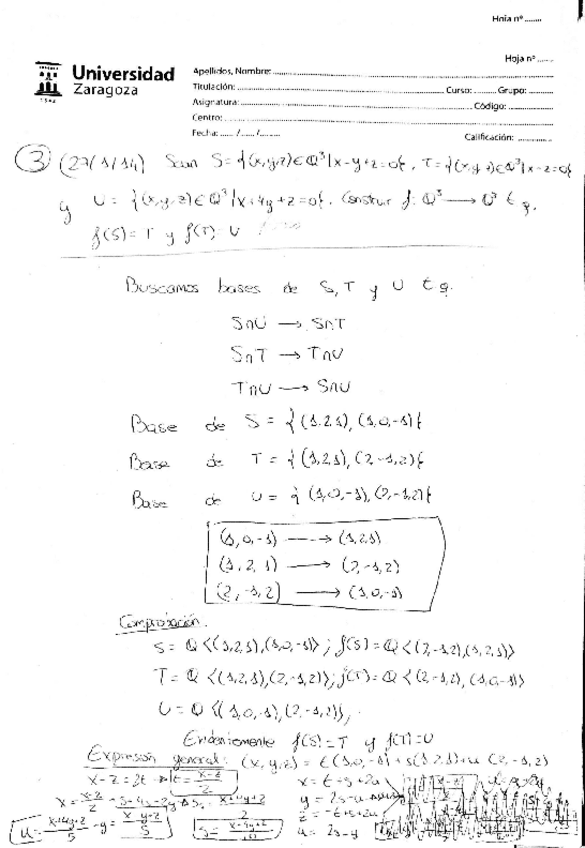 Hoja nº ........
Hoja nº ........
Universidad
Zaragoza
1542
Apellidos, Nombre:
Titulación: Curso: Grupo:
Asignatura: Código:
Centro:
Fecha: / / Calificación:
③ (27/1/14) Sean S={(x,y,z)∈Q³|x-y+z=0}, T={(x,y,z)∈Q³|x-z=0}
y U={(x,y,z)∈Q³|x+4y+z=0}. Construir f: Q³ → Q³ t.q.
f(S)=T y f(T)=U
Buscamos bases de S, T y U t.q.
S∩U → S∩T
S∩T → T∩U
T∩U → S∩U
Base de S = {(1,2,1),(1,0,-1)}
Base de T = {(1,2,1),(2,-1,2)}
Base de U = {(1,0,-1),(2,-1,2)}
(1,0,-1) → (1,2,1)
(1,2,1) → (2,-1,2)
(2,-1,2) → (1,0,-1)
Comprobación.
S = Q<(1,2,1),(1,0,-1)>; f(S)=Q<(2,-1,2),(1,2,1)>
T = Q<(1,2,1),(2,-1,2)>; f(T)=Q<(2,-1,2),(1,0,-1)>
U = Q<(1,0,-1),(2,-1,2)>,
Evidentemente f(S)=T y f(T)=U
Expresión general: (x,y,z)=t(1,0,-1)+s(1,2,1)+u(2,-1,2)
x-z=2t → t=x-z/2
x=t+s+2u
y=2s-u
z=-t+s+2u
u=2s-y